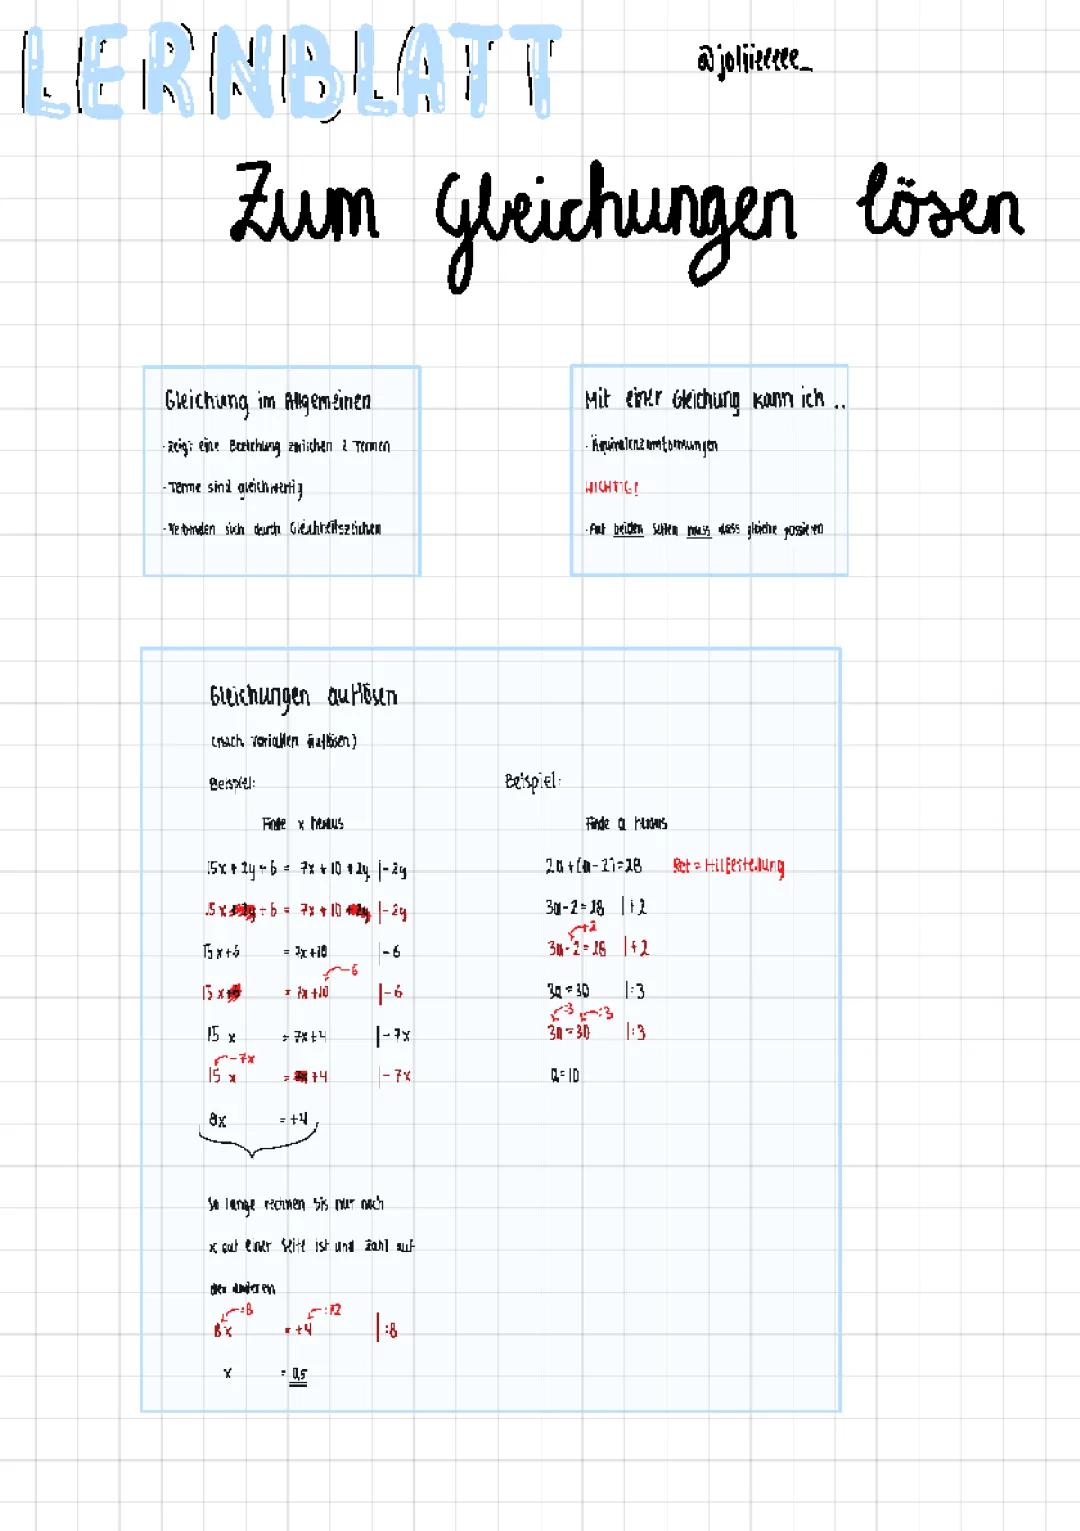 LERNBLATT
@joljieeeee_
Zum Gleichungen lösen
Gleichung im Allgemeinen
- zeigt eine Beziehung zwischen 2 Termen
- Terme sind gleichwertig
- Verbinden sich durch Gleichheitszeichen
Mit einer Gleichung kann ich ..
- Äquivalenzumformungen
WICHTIG!
- Auf beiden Seiten muss dass gleiche passieren
Gleichungen auflösen
(nach Variablen auflösen)
Beispiel:
Finde x heraus
15x + 2y + 6 = 7x + 10 + 2y |-2y
15x + 2y + 6 = 7x + 10 + 2y |-2y
15x+6 = 7x+10 |-6
-6
15x = 7x+10 |-6
15 x = 7x+4 |-7x
-7x
15 x = +4 |-7x
8x = +4
So lange rechnen bis nur noch
x auf einer Seite ist und Zahl auf
der anderen
:8 :12
8x = +4 |:8
x = 0,5
Beispiel:
Finde a heraus
2a+(a-2)=28 Rot = Hilfestellung
3a-2=28 |+2
+2
3a-2=28 |+2
3a=30 |:3
:3 :3
3a=30 |:3
a=10